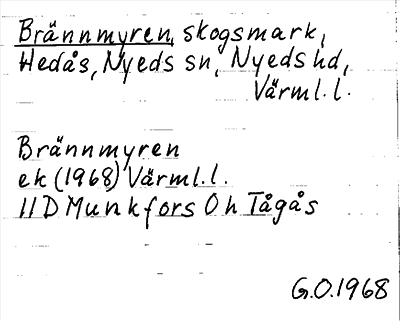 Brännmyren, skogsmark,
Hedås, Nyeds sn, Nyeds hd,
Värml. l.
Brännmyren
ek (1968) Värml. l.
11D Munkfors Oh Tågås
G.O. 1968